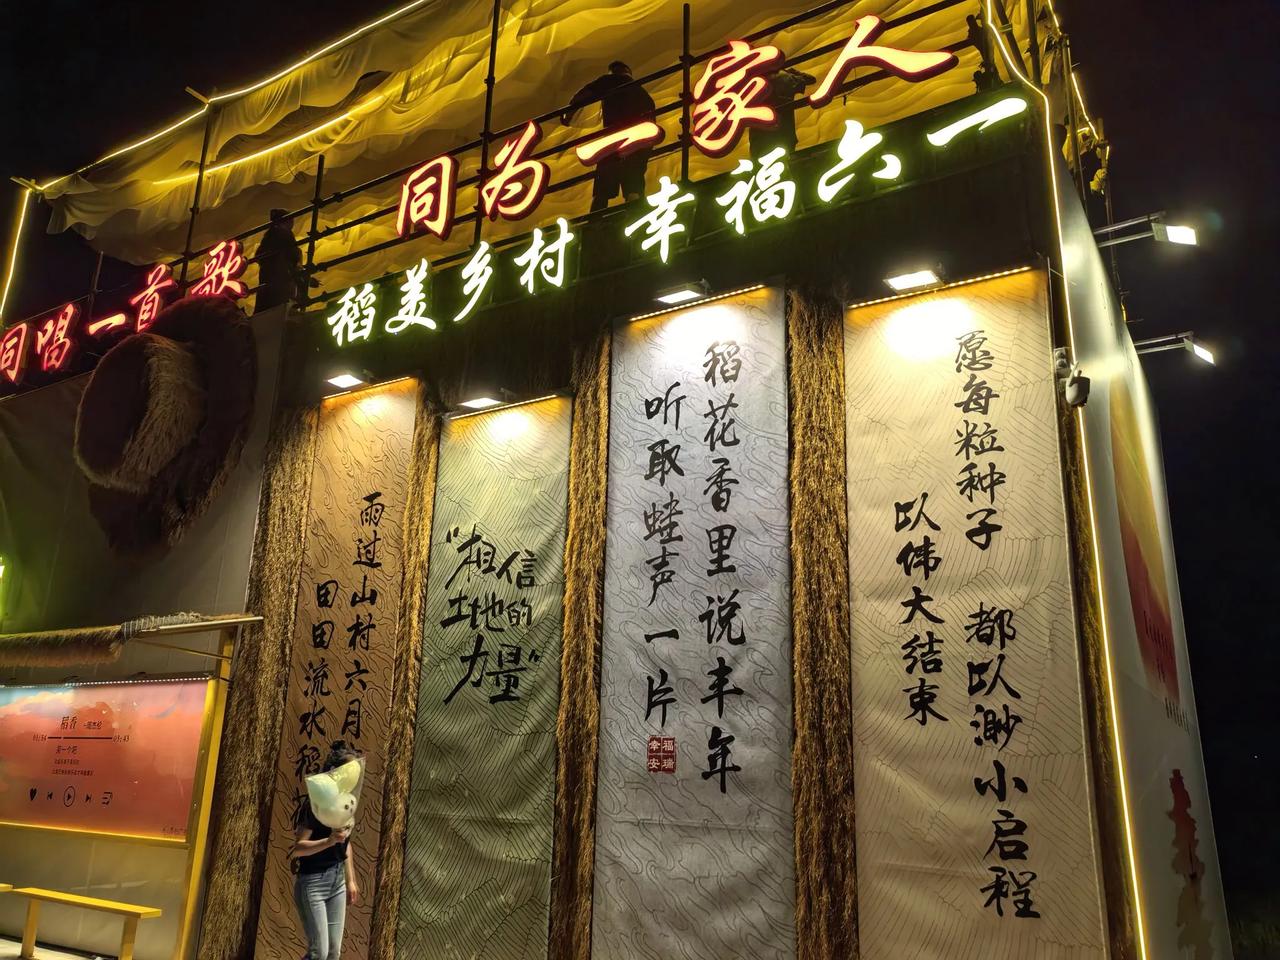 同为一家人
同唱一首歌
稻美乡村 幸福六一
愿每粒种子 都以渺小启程
以伟大结束
稻花香里说丰年
听取蛙声一片
福瑞
幸安
“相信
土地的
力量”
雨过山村六月
田田流水稻
稻香 -周杰伦
03:43